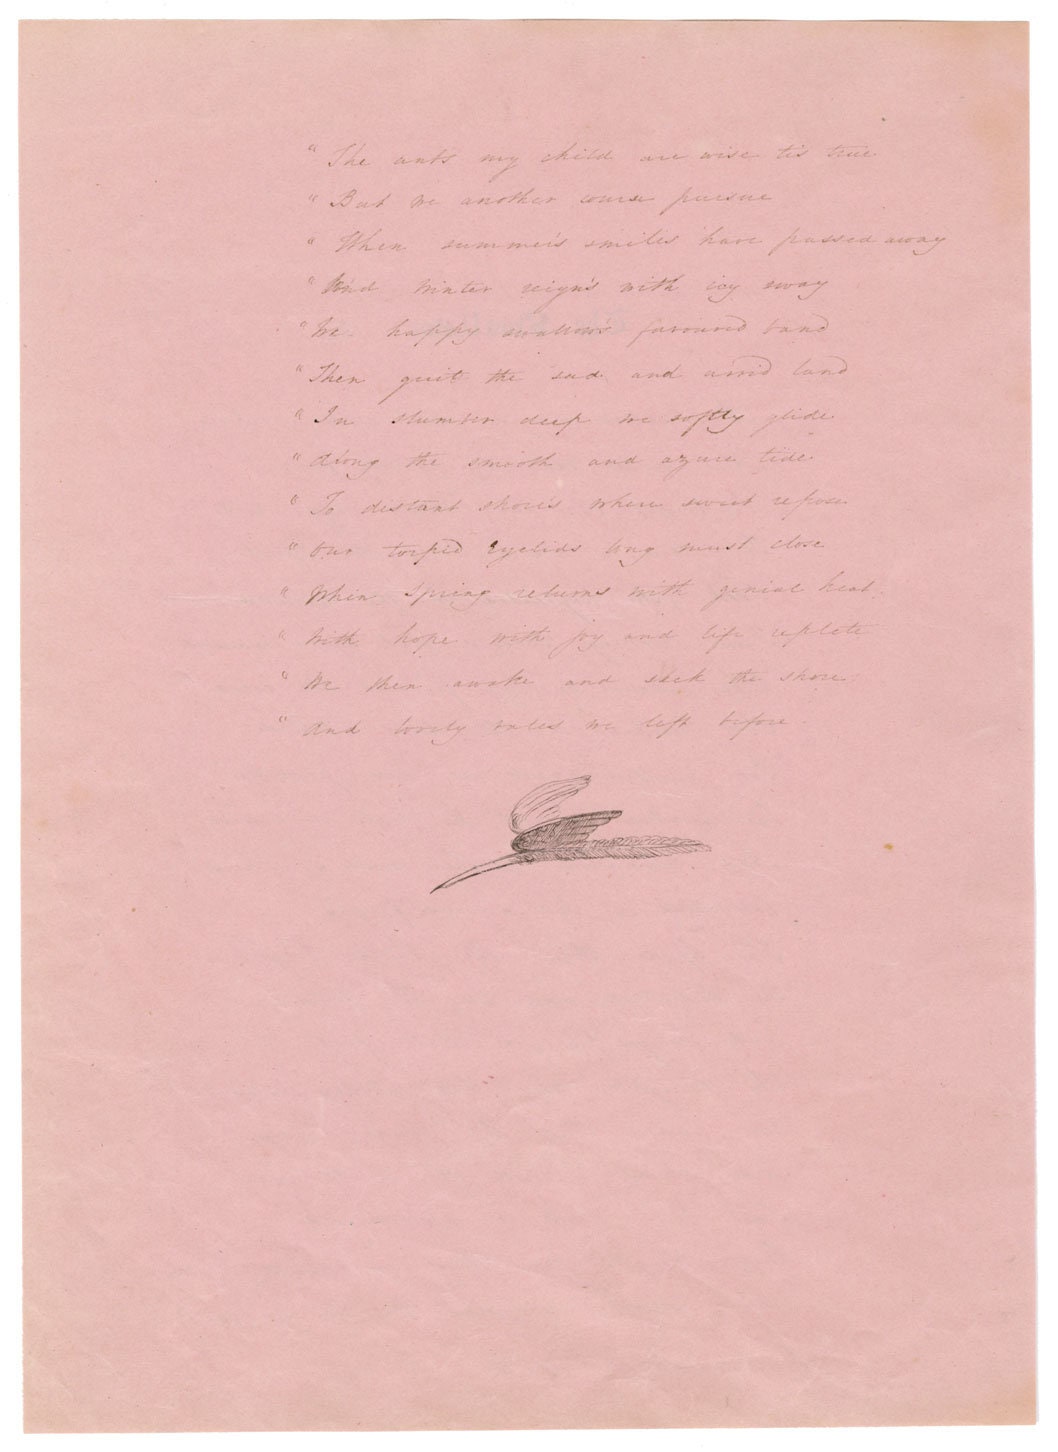 " The ants my child are wise tis true
" But we another course pursue
" When summer's smiles have passed away
" And Winter reign's with icy sway
" We happy swallow's favoured band
" Then quit the sad and arrid land
" In slumber deep we softly glide
" Along the smooth and azure tide
" To distant shore's where sweet repose
" Our torpid eyelids long must close
" When Spring returns with genial heat
" With hope with joy and life replete
" We then awake and seek the shore
" And lovely vales we left before.